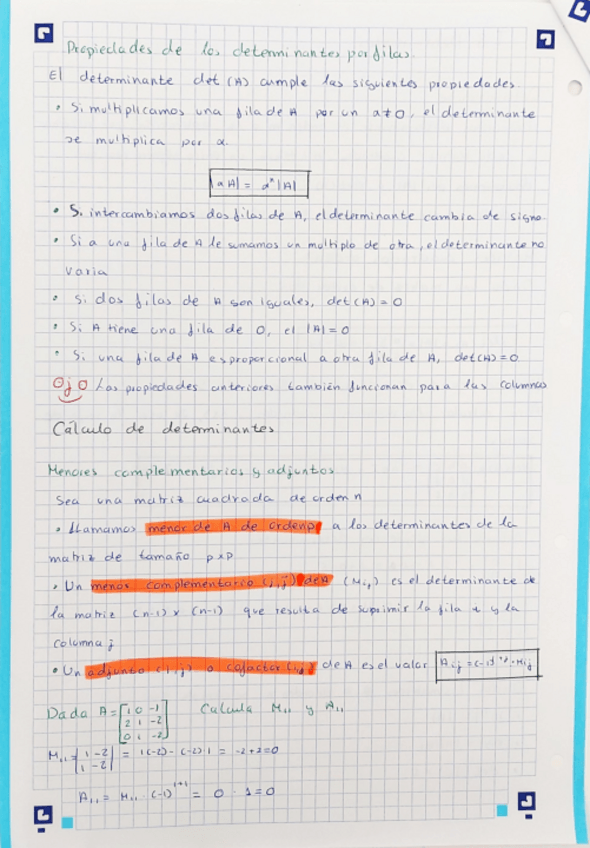 Propiedades de los determinantes por filas.
El determinante det (A) cumple las siguientes propiedades
• Si multiplicamos una fila de A por un α≠0, el determinante
se multiplica por α.
|αA| = αⁿ|A|
• Si intercambiamos dos filas de A, el determinante cambia de signo.
• Si a una fila de A le sumamos un multiplo de otra, el determinante no
varia
• Si dos filas de A son iguales, det (A) = 0
• Si A tiene una fila de 0, el |A| = 0
• Si una fila de A es proporcional a otra fila de A, det(A) = 0
Ojo Las propiedades anteriores también funcionan para las columnas
Cálculo de determinantes
Menores complementarios y adjuntos
Sea una matriz cuadrada de orden n
• Llamamos menor de A de orden p a los determinantes de la
matriz de tamaño p×p
• Un menor complementario (i,j) de A (Mij) es el determinante de
la matriz (n-1) x (n-1) que resulta de suprimir la fila i y la
columna j
• Un adjunto (i,j) o cofactor (i,j) de A es el valor Aij = (-1)ⁱ⁺ʲ · Mij
Dada A = [1 0 -1 Calcula M11 y A11
2 1 -2
0 1 -2]
M11 = |1 -2| = 1(-2) - (-2)1 = -2+2=0
|1 -2|
A11 = M11 · (-1)¹⁺¹ = 0 · 1 = 0